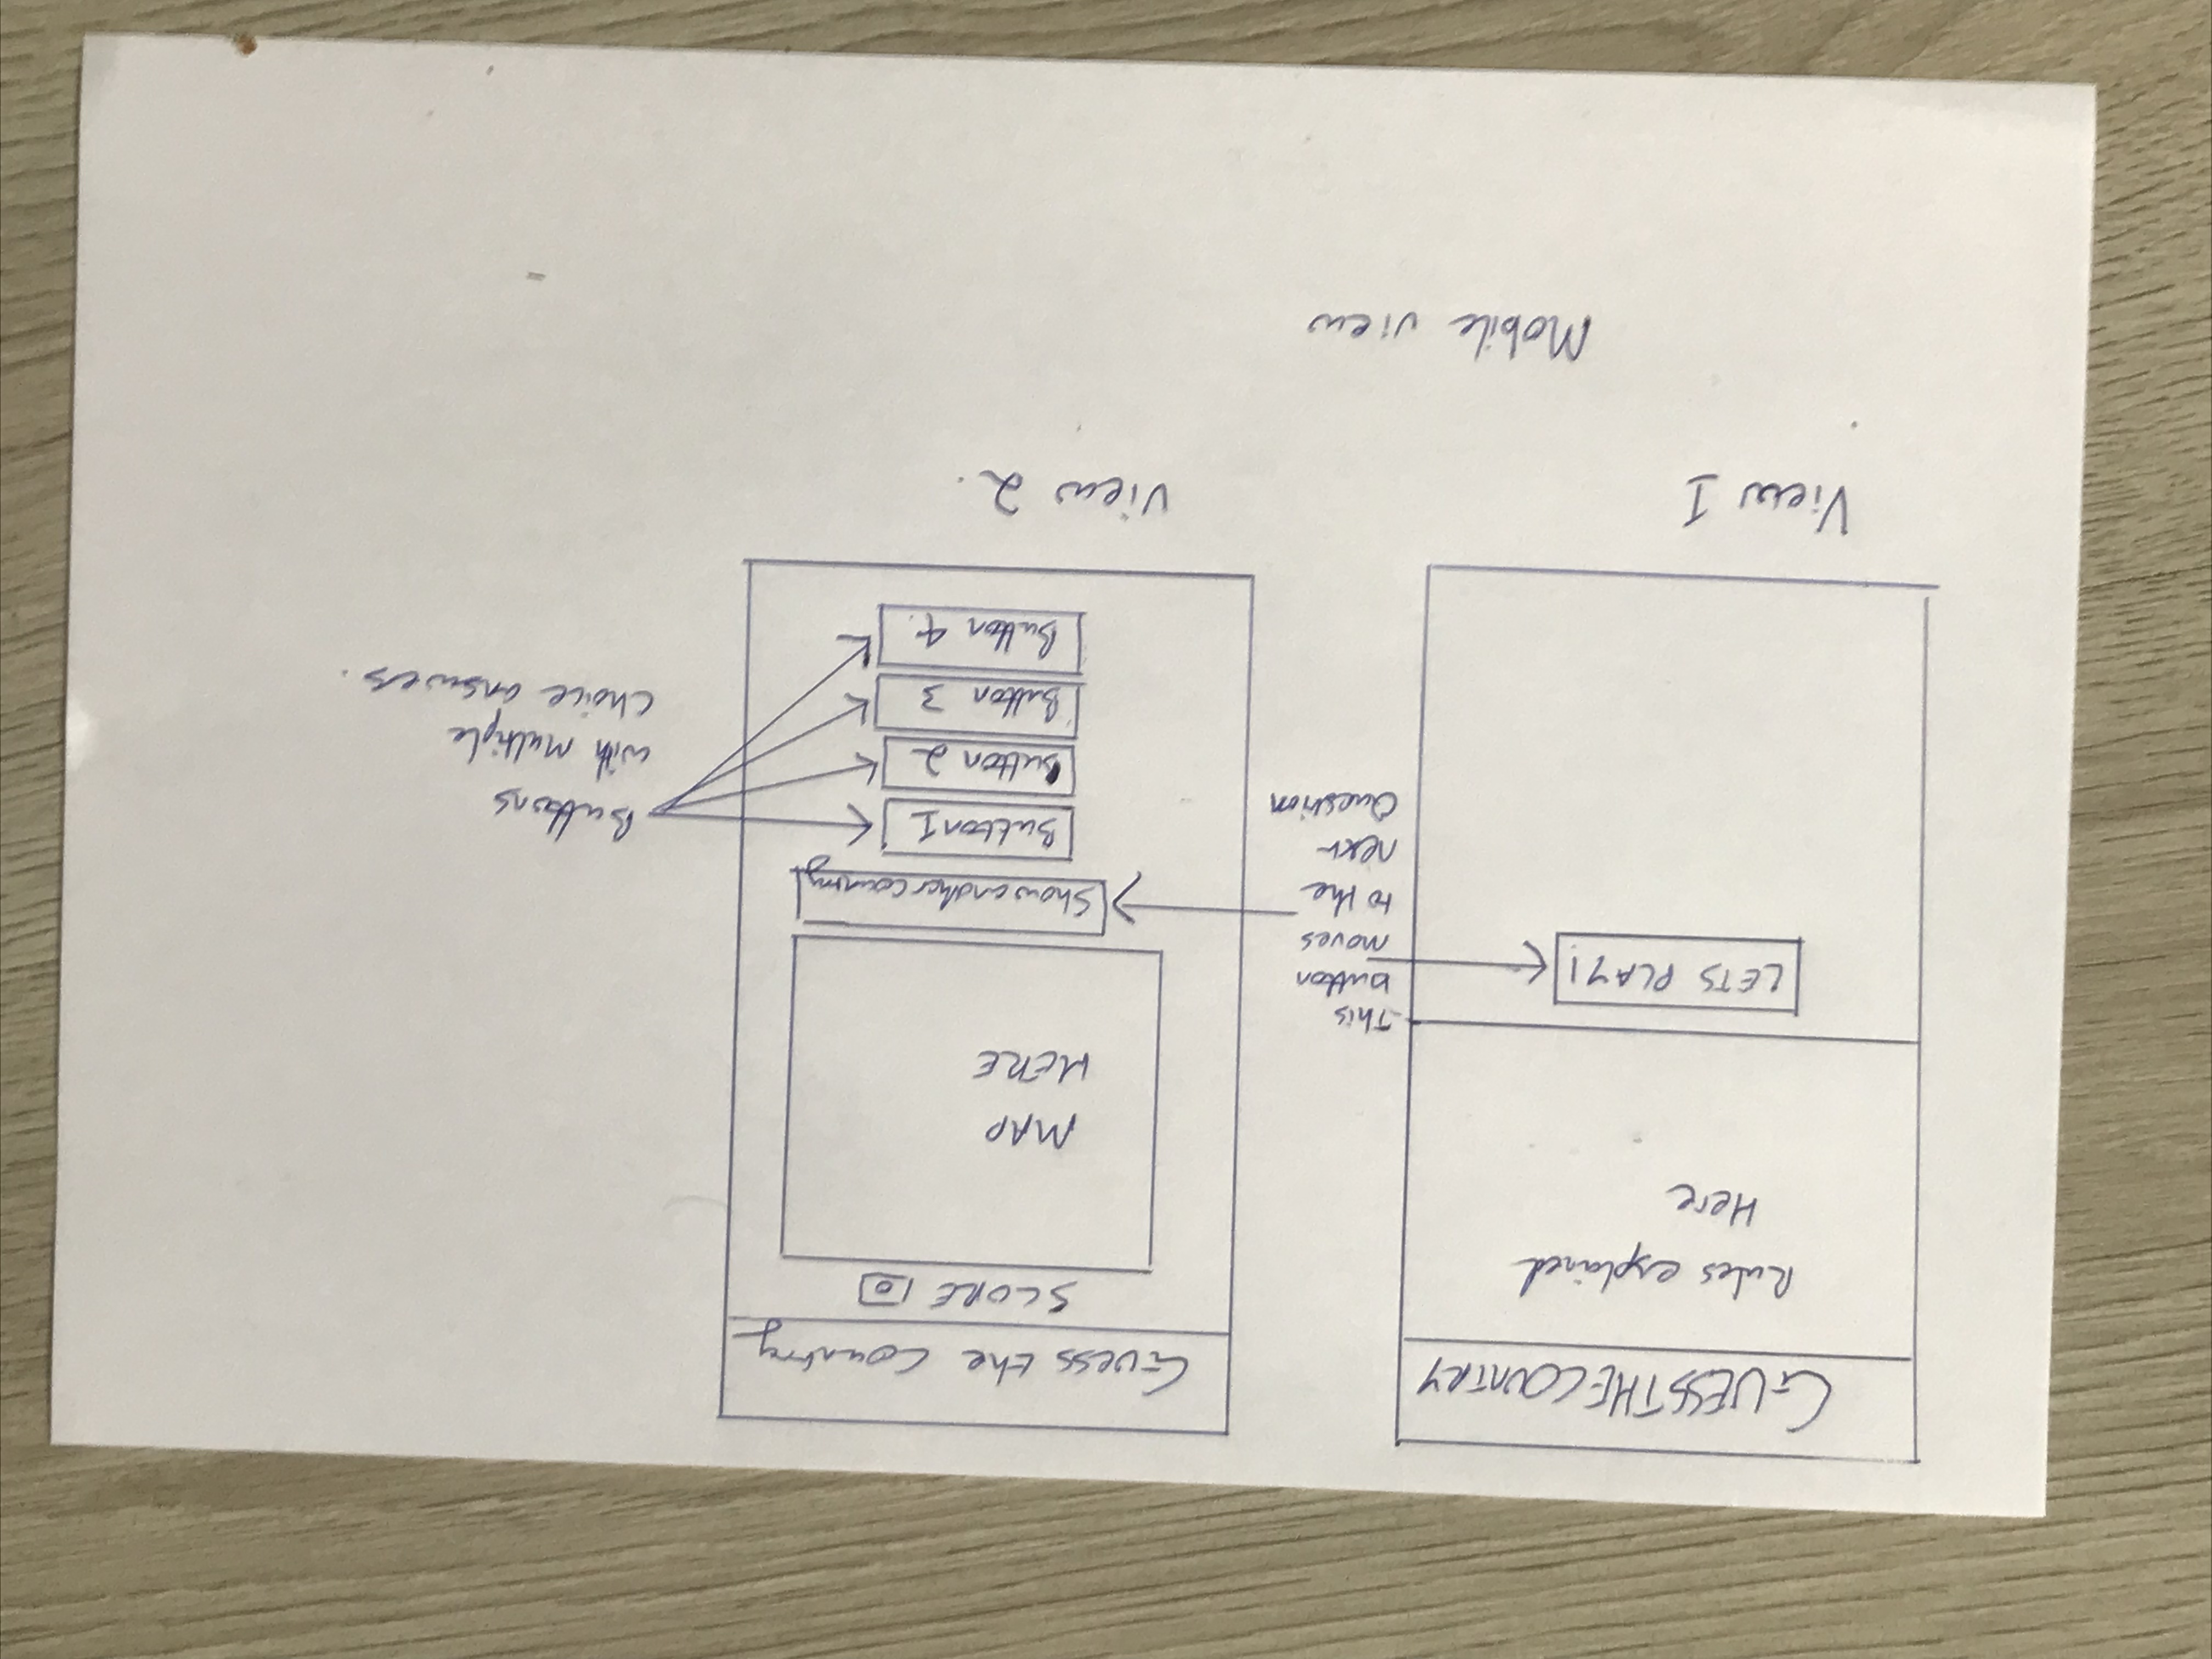 GUESSTHECOUNTRY
Rules explained
Here
LETS PLAY!
This
button
moves
to the
next
Question
View 1
Guess the Country
SCORE 0
MAP
HERE
Showanothercountry
Button 1
Button 2
Button 3
Button 4.
Buttons
with multiple
choice answes.
View 2.
Mobile view